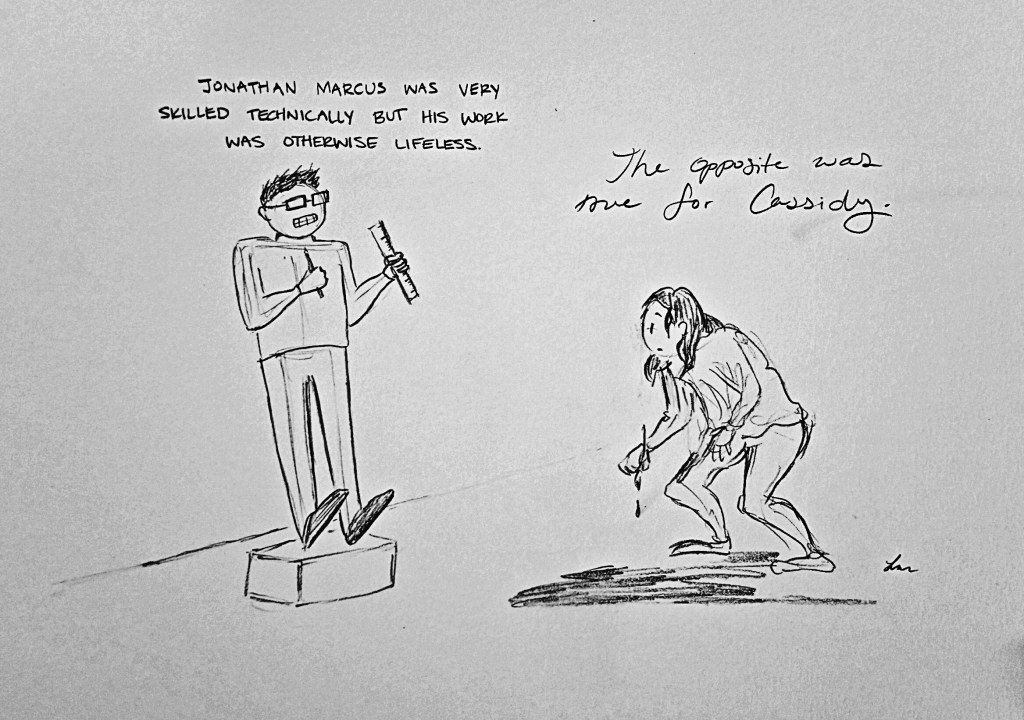 JONATHAN MARCUS WAS VERY
SKILLED TECHNICALLY BUT HIS WORK
WAS OTHERWISE LIFELESS.
The opposite was
true for Cassidy.